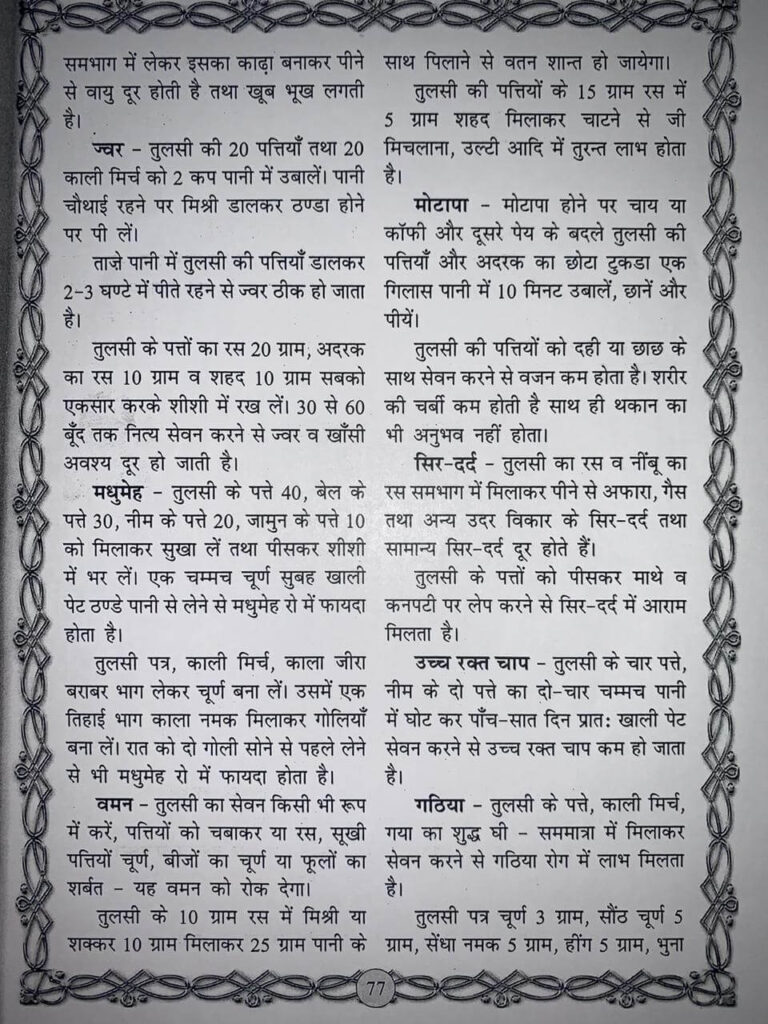 समभाग में लेकर इसका काढ़ा बनाकर पीने
से वायु दूर होती है तथा खूब भूख लगती
है।
ज्वर – तुलसी की 20 पत्तियाँ तथा 20
काली मिर्च को 2 कप पानी में उबालें। पानी
चौथाई रहने पर मिश्री डालकर ठण्डा होने
पर पी लें।
ताज़े पानी में तुलसी की पत्तियाँ डालकर
2-3 घण्टे में पीते रहने से ज्वर ठीक हो जाता
है।
तुलसी के पत्तों का रस 20 ग्राम, अदरक
का रस 10 ग्राम व शहद 10 ग्राम सबको
एकसार करके शीशी में रख लें। 30 से 60
बूँद तक नित्य सेवन करने से ज्वर व खाँसी
अवश्य दूर हो जाती है।
मधुमेह – तुलसी के पत्ते 40, बेल के
पत्ते 30, नीम के पत्ते 20, जामुन के पत्ते 10
को मिलाकर सुखा लें तथा पीसकर शीशी
में भर लें। एक चम्मच चूर्ण सुबह खाली
पेट ठण्डे पानी से लेने से मधुमेह रो में फायदा
होता है।
तुलसी पत्र, काली मिर्च, काला जीरा
बराबर भाग लेकर चूर्ण बना लें। उसमें एक
तिहाई भाग काला नमक मिलाकर गोलियाँ
बना लें। रात को दो गोली सोने से पहले लेने
से भी मधुमेह रो में फायदा होता है।
वमन – तुलसी का सेवन किसी भी रूप
में करें, पत्तियों को चबाकर या रस, सूखी
पत्तियों चूर्ण, बीजों का चूर्ण या फूलों का
शर्बत – यह वमन को रोक देगा।
तुलसी के 10 ग्राम रस में मिश्री या
शक्कर 10 ग्राम मिलाकर 25 ग्राम पानी के
साथ पिलाने से वतन शान्त हो जायेगा।
तुलसी की पत्तियों के 15 ग्राम रस में
5 ग्राम शहद मिलाकर चाटने से जी
मिचलाना, उल्टी आदि में तुरन्त लाभ होता
है।
मोटापा – मोटापा होने पर चाय या
कॉफी और दूसरे पेय के बदले तुलसी की
पत्तियाँ और अदरक का छोटा टुकडा एक
गिलास पानी में 10 मिनट उबालें, छानें और
पीयें।
तुलसी की पत्तियों को दही या छाछ के
साथ सेवन करने से वजन कम होता है। शरीर
की चर्बी कम होती है साथ ही थकान का
भी अनुभव नहीं होता।
सिर-दर्द – तुलसी का रस व नींबू का
रस समभाग में मिलाकर पीने से अफारा, गैस
तथा अन्य उदर विकार के सिर-दर्द तथा
सामान्य सिर-दर्द दूर होते हैं।
तुलसी के पत्तों को पीसकर माथे व
कनपटी पर लेप करने से सिर-दर्द में आराम
मिलता है।
उच्च रक्त चाप – तुलसी के चार पत्ते,
नीम के दो पत्ते का दो-चार चम्मच पानी
में घोट कर पाँच-सात दिन प्रात: खाली पेट
सेवन करने से उच्च रक्त चाप कम हो जाता
है।
गठिया – तुलसी के पत्ते, काली मिर्च,
गया का शुद्ध घी – सममात्रा में मिलाकर
सेवन करने से गठिया रोग में लाभ मिलता
है।
तुलसी पत्र चूर्ण 3 ग्राम, सौंठ चूर्ण 5
ग्राम, सेंधा नमक 5 ग्राम, हींग 5 ग्राम, भुना
77